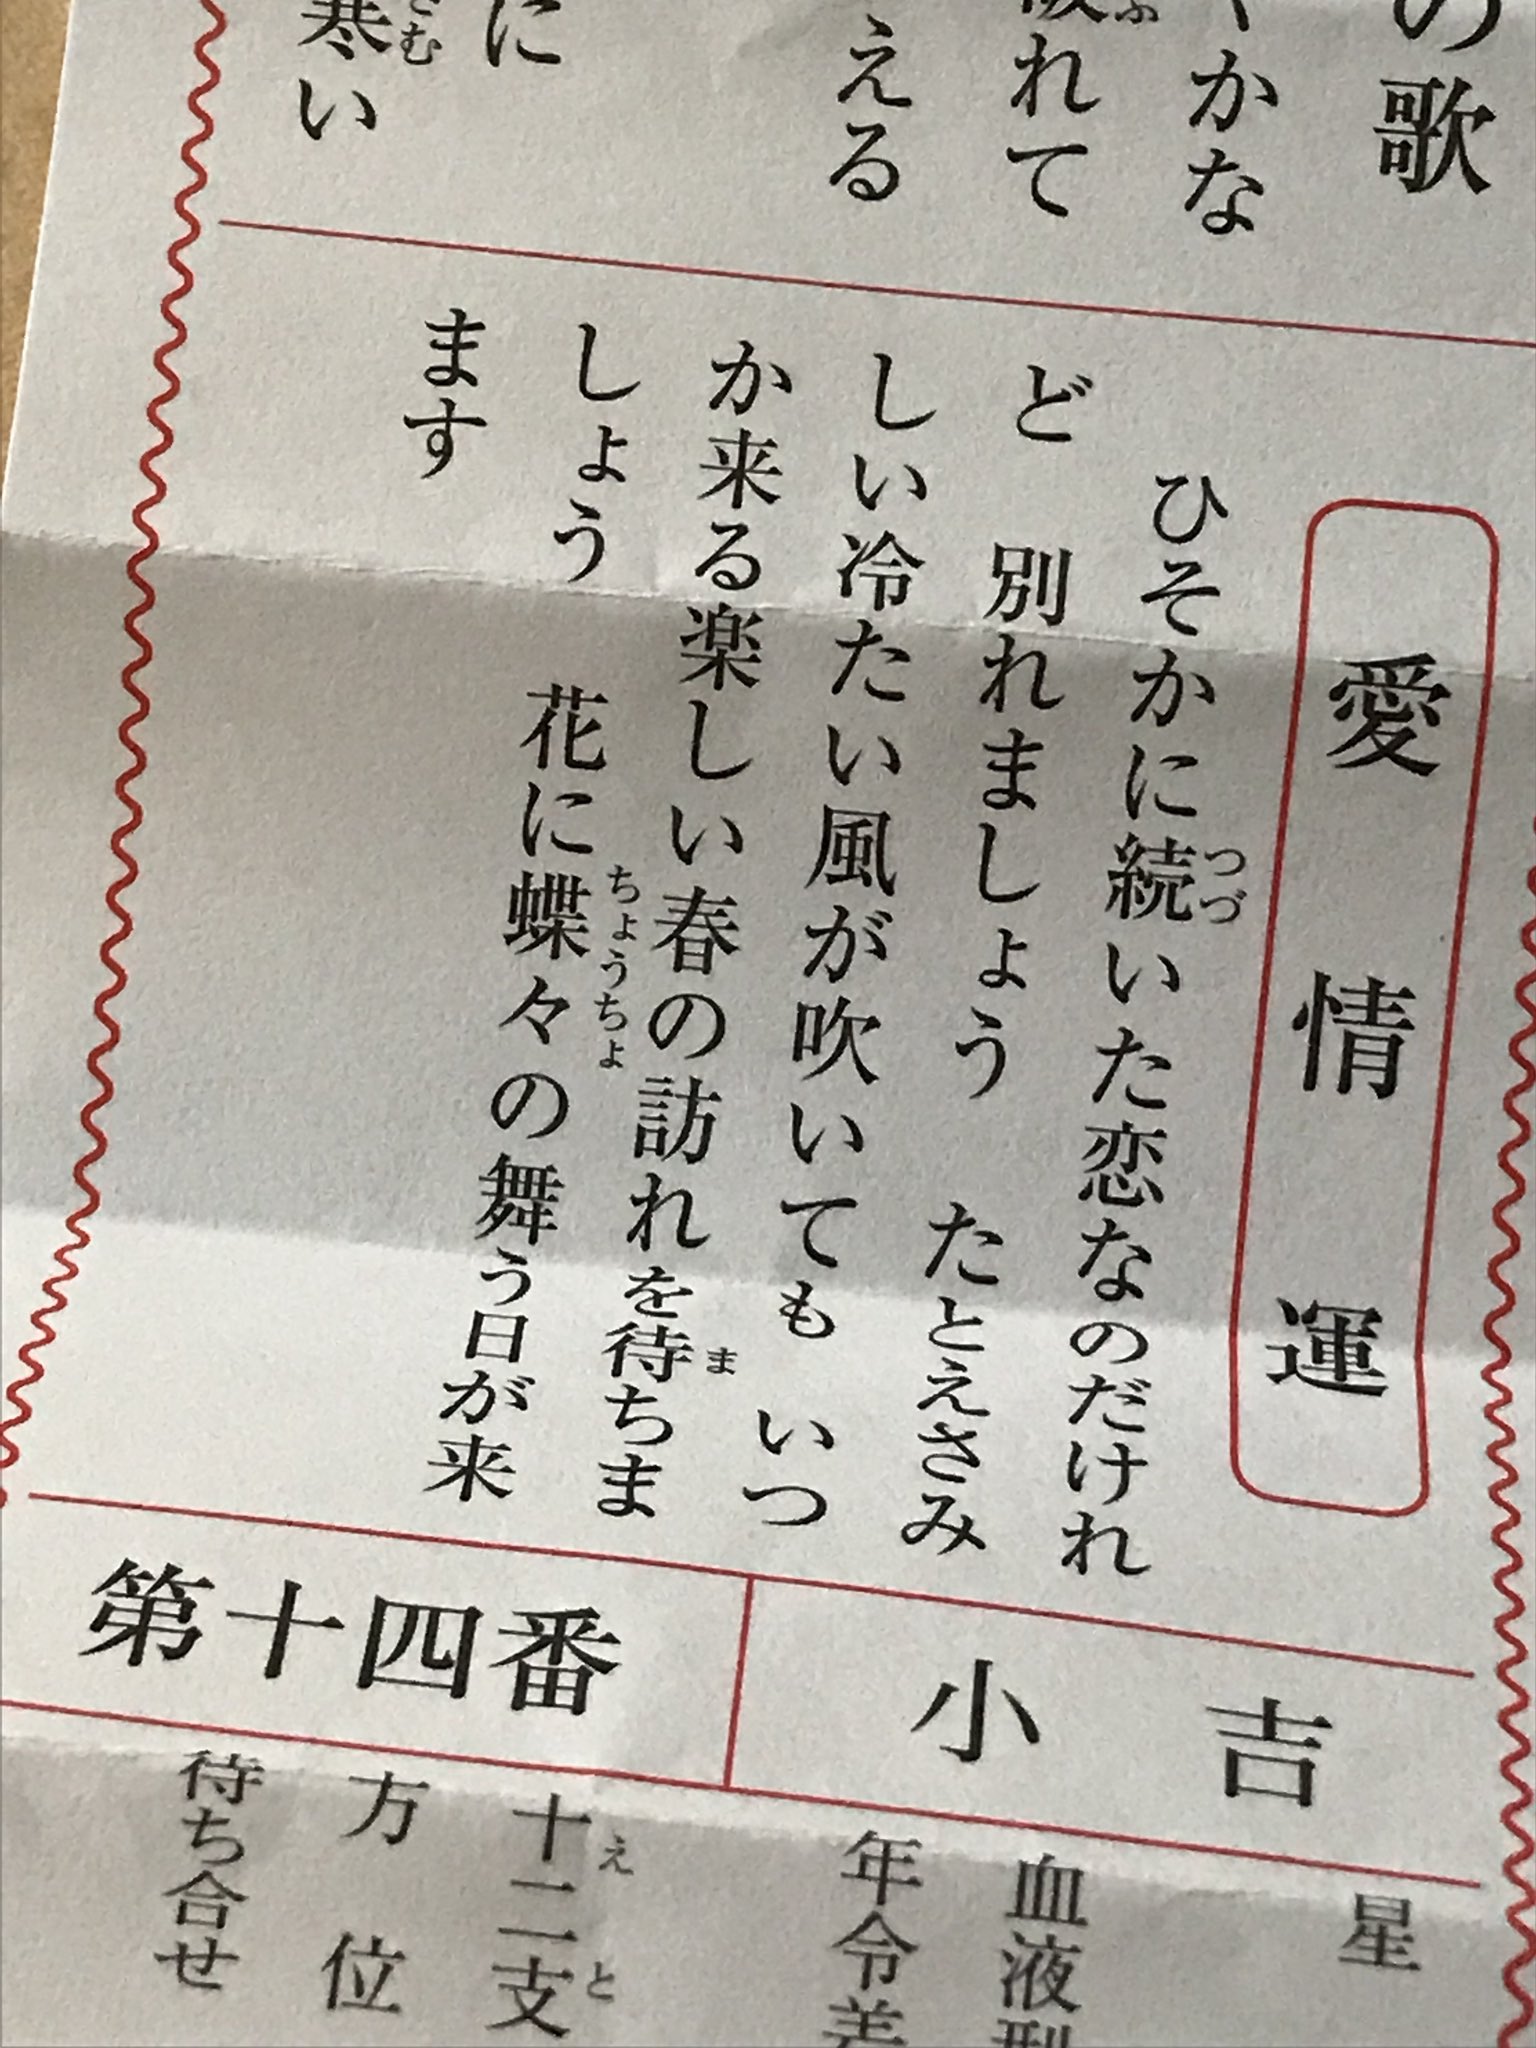 の歌
くかな
れて
える
に
寒い
さむ
愛情運
ひそかに続いた恋なのだけれ
つづ
ど　別れましょう　たとえさみ
しい冷たい風が吹いても　いつ
か来る楽しい春の訪れを待ちま
ま
しょう　花に蝶々の舞う日が来
ちょうちょ
ます
小吉
第十四番
星
血液型
年令差
十二支
えと
方位
待ち合せ